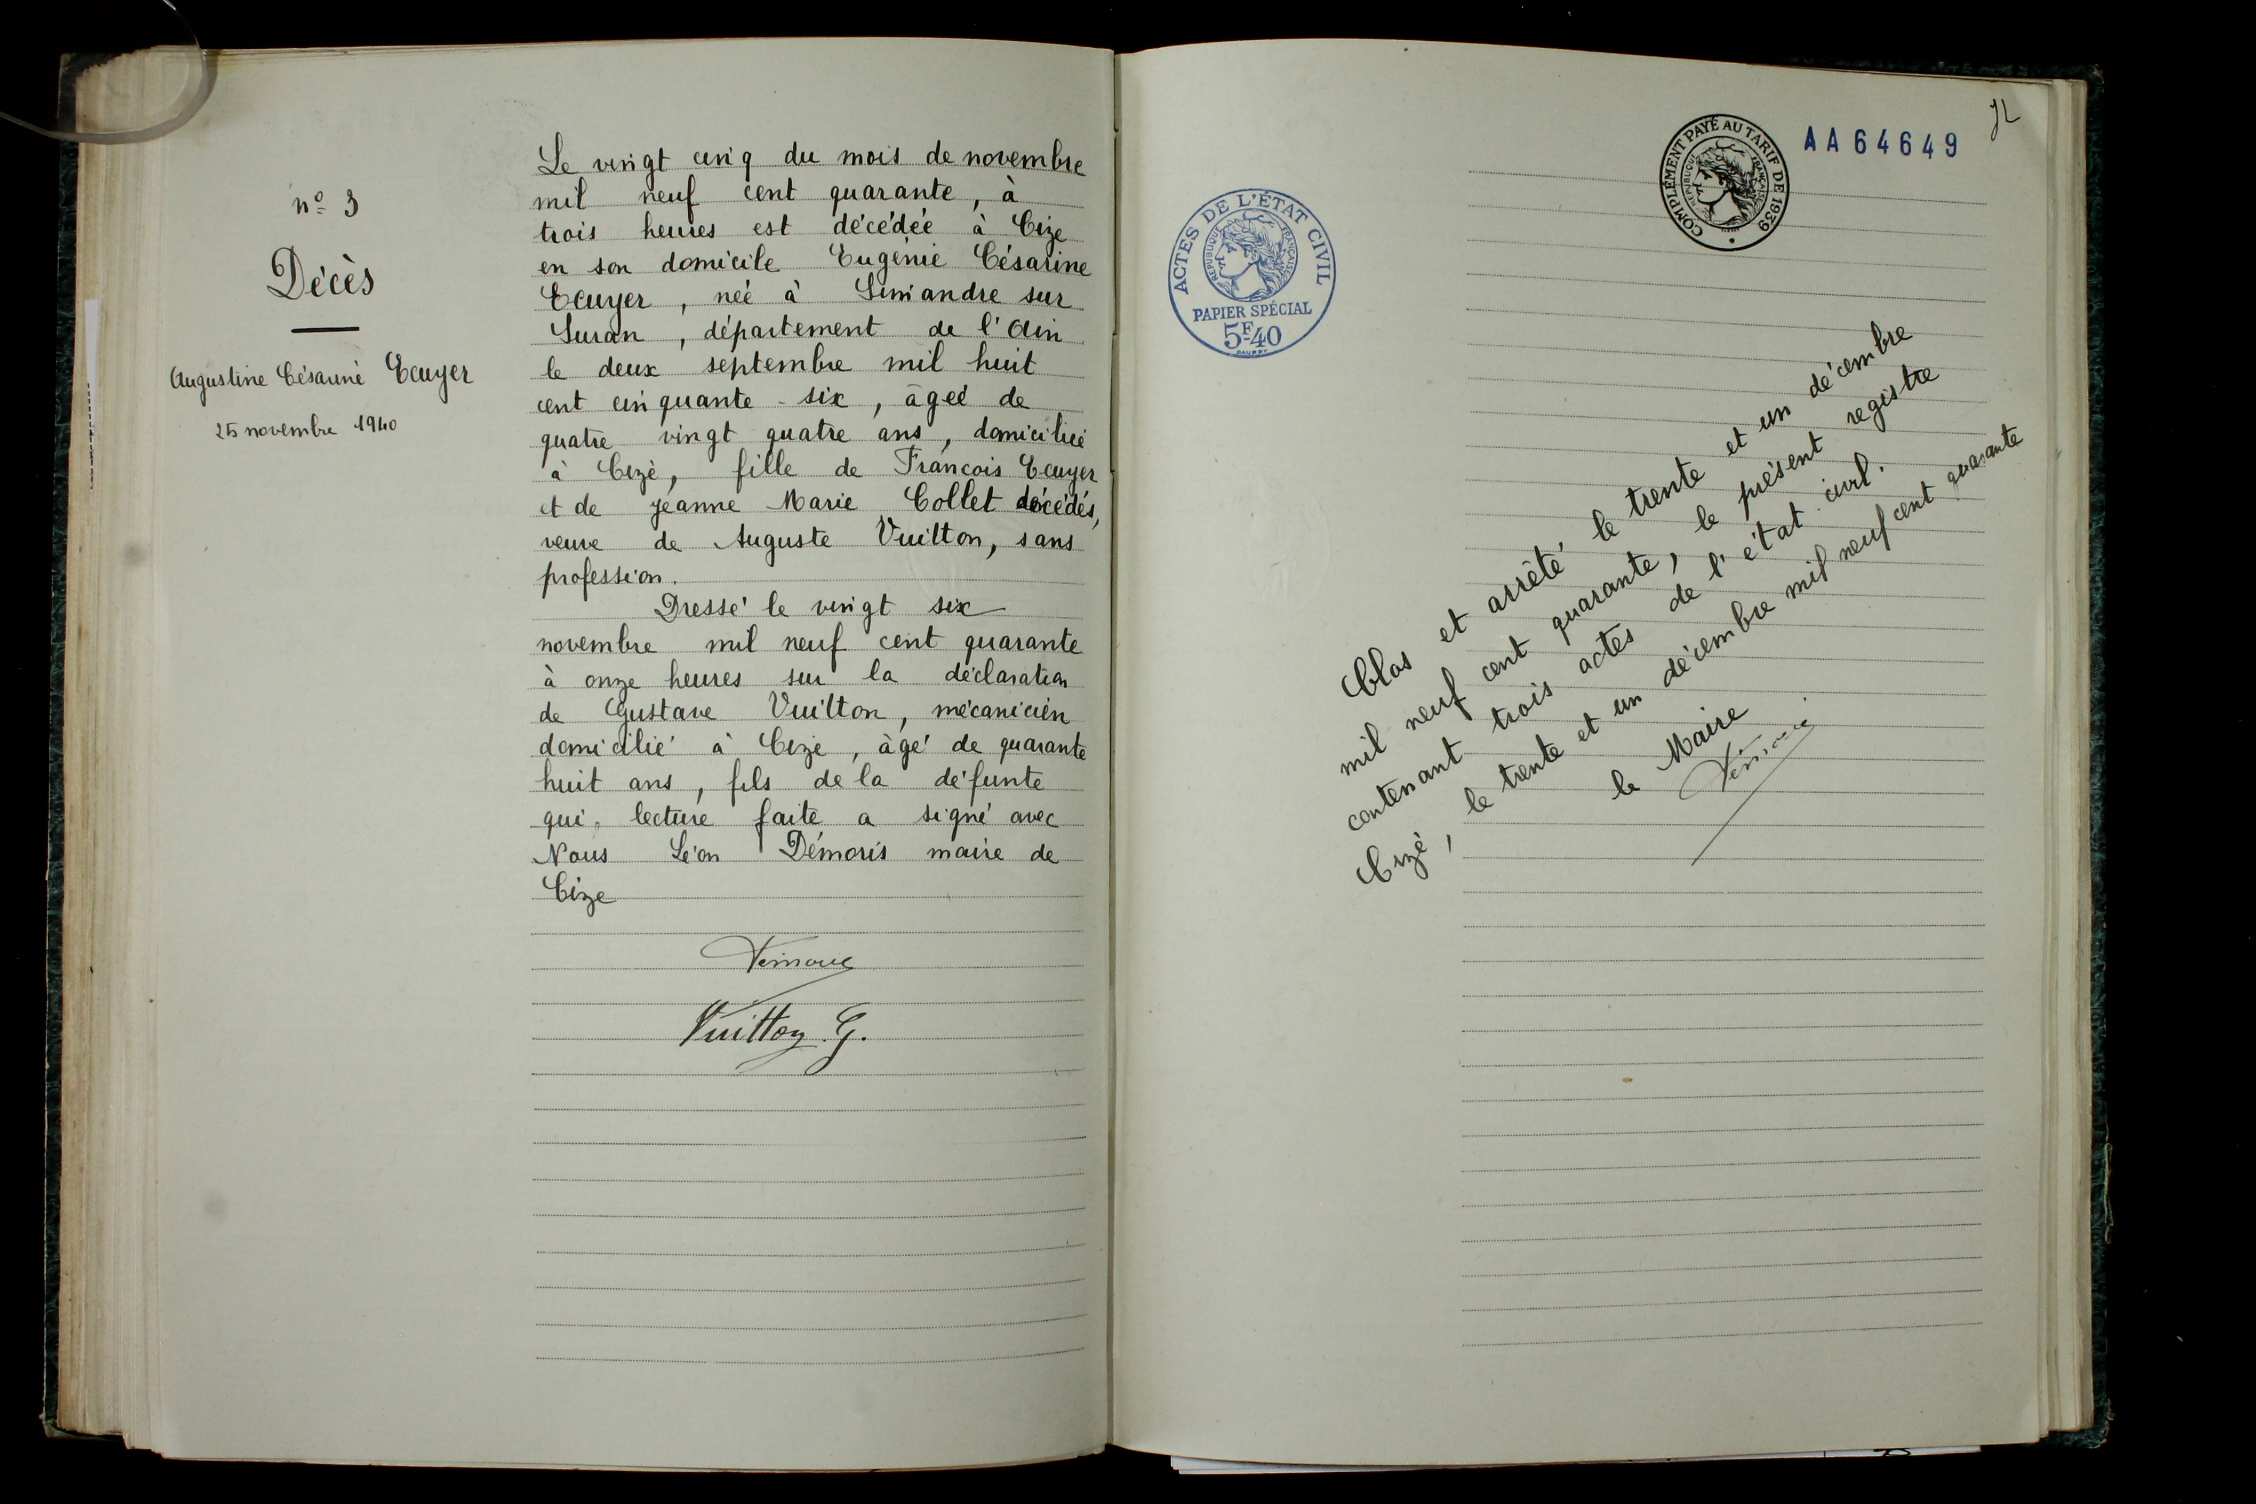 nº 3
Décès
Augustine Césarine Ecuyer
25 novembre 1940
Le vingt cinq du mois de novembre
mil neuf cent quarante, à
trois heures est décédée à Cize
en son domicile Eugénie Césarine
Ecuyer, née à Simandre sur
Suran, département de l'Ain
le deux septembre mil huit
cent cinquante-six, âgée de
quatre vingt quatre ans, domiciliée
à Cize, fille de François Ecuyer
et de Jeanne Marie Collet décédés,
veuve de Auguste Vuitton, sans
profession.
Dressé le vingt six
novembre mil neuf cent quarante
à onze heures sur la déclaration
de Gustave Vuitton, mécanicien
domicilié à Cize, âgé de quarante
huit ans, fils de la défunte
qui, lecture faite a signé avec
Nous Léon Démoris maire de
Cize
Vuitton G.
ACTES DE L'ÉTAT CIVIL
RÉPUBLIQUE FRANÇAISE
PAPIER SPÉCIAL
5F40
COMPLÉMENT PAYÉ AU TARIF DE 1939
RÉPUBLIQUE FRANÇAISE
AA64649
Clos et arrêté, le trente et un décembre
mil neuf cent quarante, le présent registre
contenant trois actes de l'état civil.
Cize, le trente et un décembre mil neuf cent quarante
le Maire